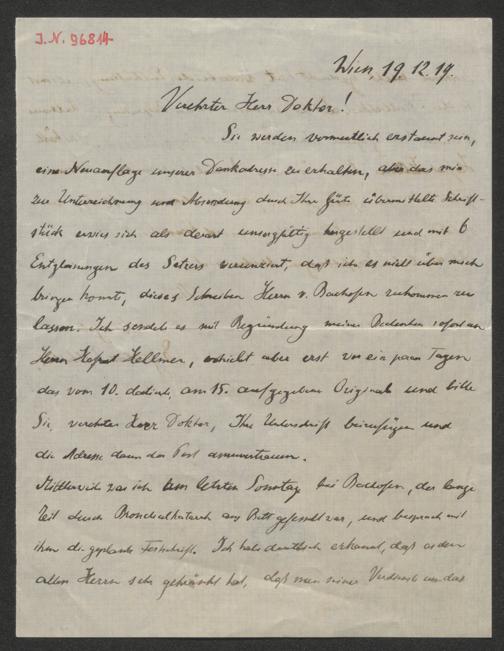 J.N. 96814
Wien, 19.12.19.
Verehrter Herr Doktor!
Sie werden vermutlich erstaunt sein,
eine Neuauflage unserer Dankadresse zu erhalten, aber das mir
zur Unterzeichnung und Absendung durch Ihre Güte übermittelte Schrift-
stück erwies sich als derart unsorgfältig hergestellt und mit 6
Entgleisungen des Setzers verunziert, daß ich es nicht über mich
bringen konnte, dieses Schreiben Herrn v. Bachofen zukommen zu
lassen. Ich sendete es mit Begründung meiner Bedenken sofort an
Herrn Hofrat Hellmer, erhielt aber erst vor ein paar Tagen
das vom 10. datierte, am 15. aufgegebene Original und bitte
Sie, verehrter Herr Doktor, Ihre Unterschrift beizufügen und
die Adresse dann der Post anzuvertrauen.
Mittlerweile war ich am letzten Sonntag bei Bachofen, der lange
Zeit durch Bronchialkatarrh ans Bett gefesselt war, und besprach mit
ihm die geplante Festschrift. Ich habe deutlich erkannt, daß es den
alten Herrn sehr gekränkt hat, daß man seiner Verdienste um das